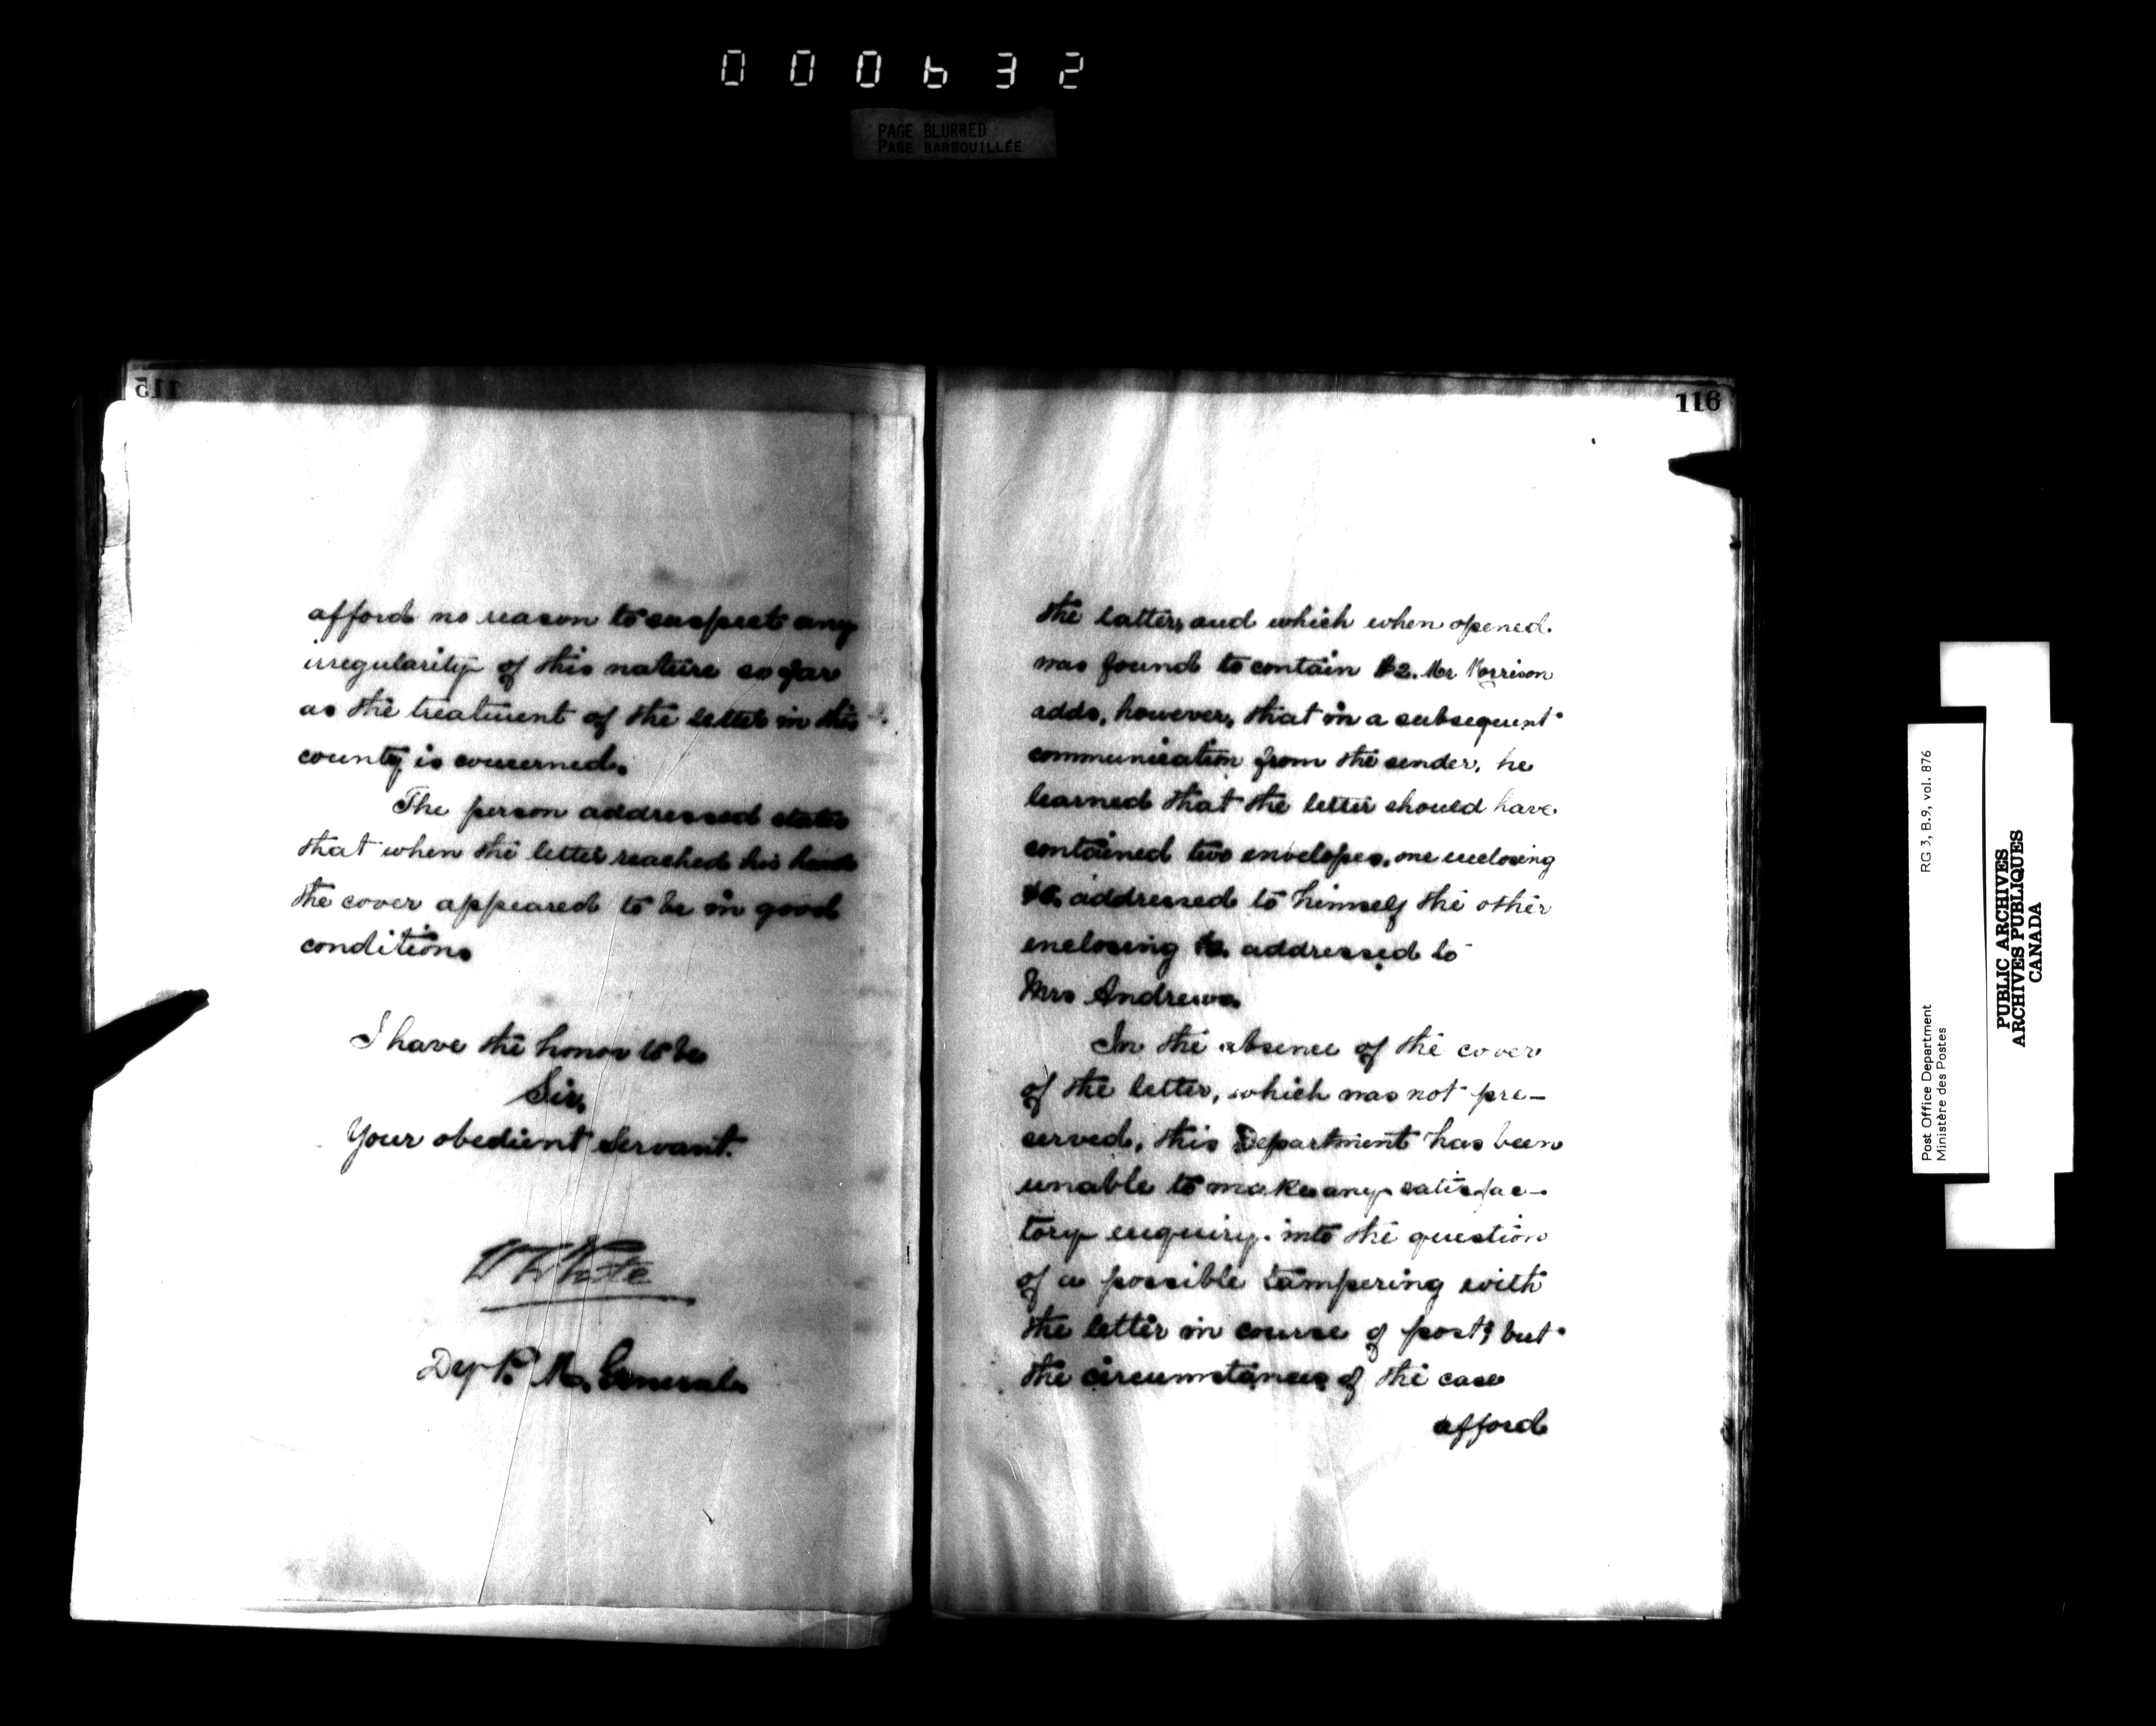 000632
PAGE BLURRED
PAGE BARBOUILLÉE
115
afford no reason to suspect any
irregularity of this nature so far
as the treatment of the letter in this
county is concerned.
The person addressed states
that when the letter reached his hands
the cover appeared to be in good
condition.
I have the honor to be
Sir,
Your obedient Servant.
W White
Dep P. M. General.
116
the latter, and which when opened.
was found to contain $2. Mr Morrison
adds, however, that in a subsequent
communication from the sender, he
learned that the letter should have
contained two envelopes, one enclosing
addressed to himself the other
enclosing addressed to
Mrs Andrews.
In the absence of the cover
of the letter, which was not pre-
served, this Department has been
unable to make any satisfac-
tory enquiry into the question
of a possible tampering with
the letter in course of post; but
the circumstances of the case
afford
Post Office Department
Ministère des Postes
RG 3, B.9, vol. 876
PUBLIC ARCHIVES
ARCHIVES PUBLIQUES
CANADA